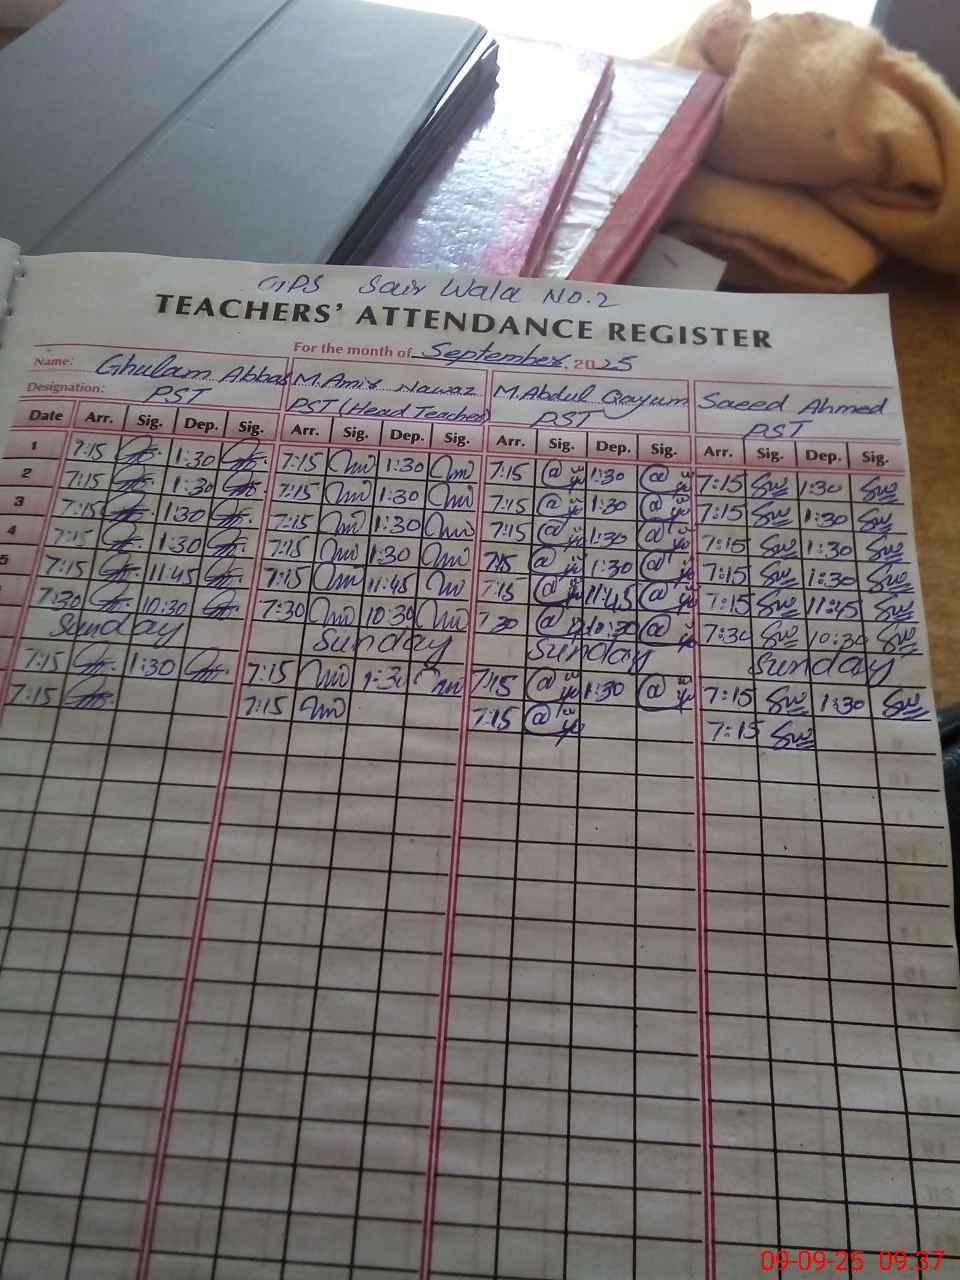 GPS Sair Wala NO.2
TEACHERS' ATTENDANCE REGISTER
For the month of September, 2025
Name: Ghulam Abbas M. Amir Nawaz M. Abdul Qayum Saeed Ahmed
Designation: PST PST (Head Teacher) PST PST
Date Arr. Sig. Dep. Sig. Arr. Sig. Dep. Sig. Arr. Sig. Dep. Sig. Arr. Sig. Dep. Sig.
1 7:15 1:30 7:15 1:30 7:15 1:30 7:15 1:30
2 7:15 1:30 7:15 1:30 7:15 1:30 7:15 1:30
3 7:15 1:30 7:15 1:30 7:15 1:30 7:15 1:30
4 7:15 1:30 7:15 1:30 7:15 1:30 7:15 1:30
5 7:15 11:45 7:15 11:45 7:15 11:45 7:15 11:45
7:30 10:30 7:30 10:30 7:30 10:30 7:30 10:30
Sunday Sunday Sunday Sunday
7:15 1:30 7:15 1:30 7:15 1:30 7:15 1:30
7:15 7:15 7:15 7:15
09-09-25 09:37